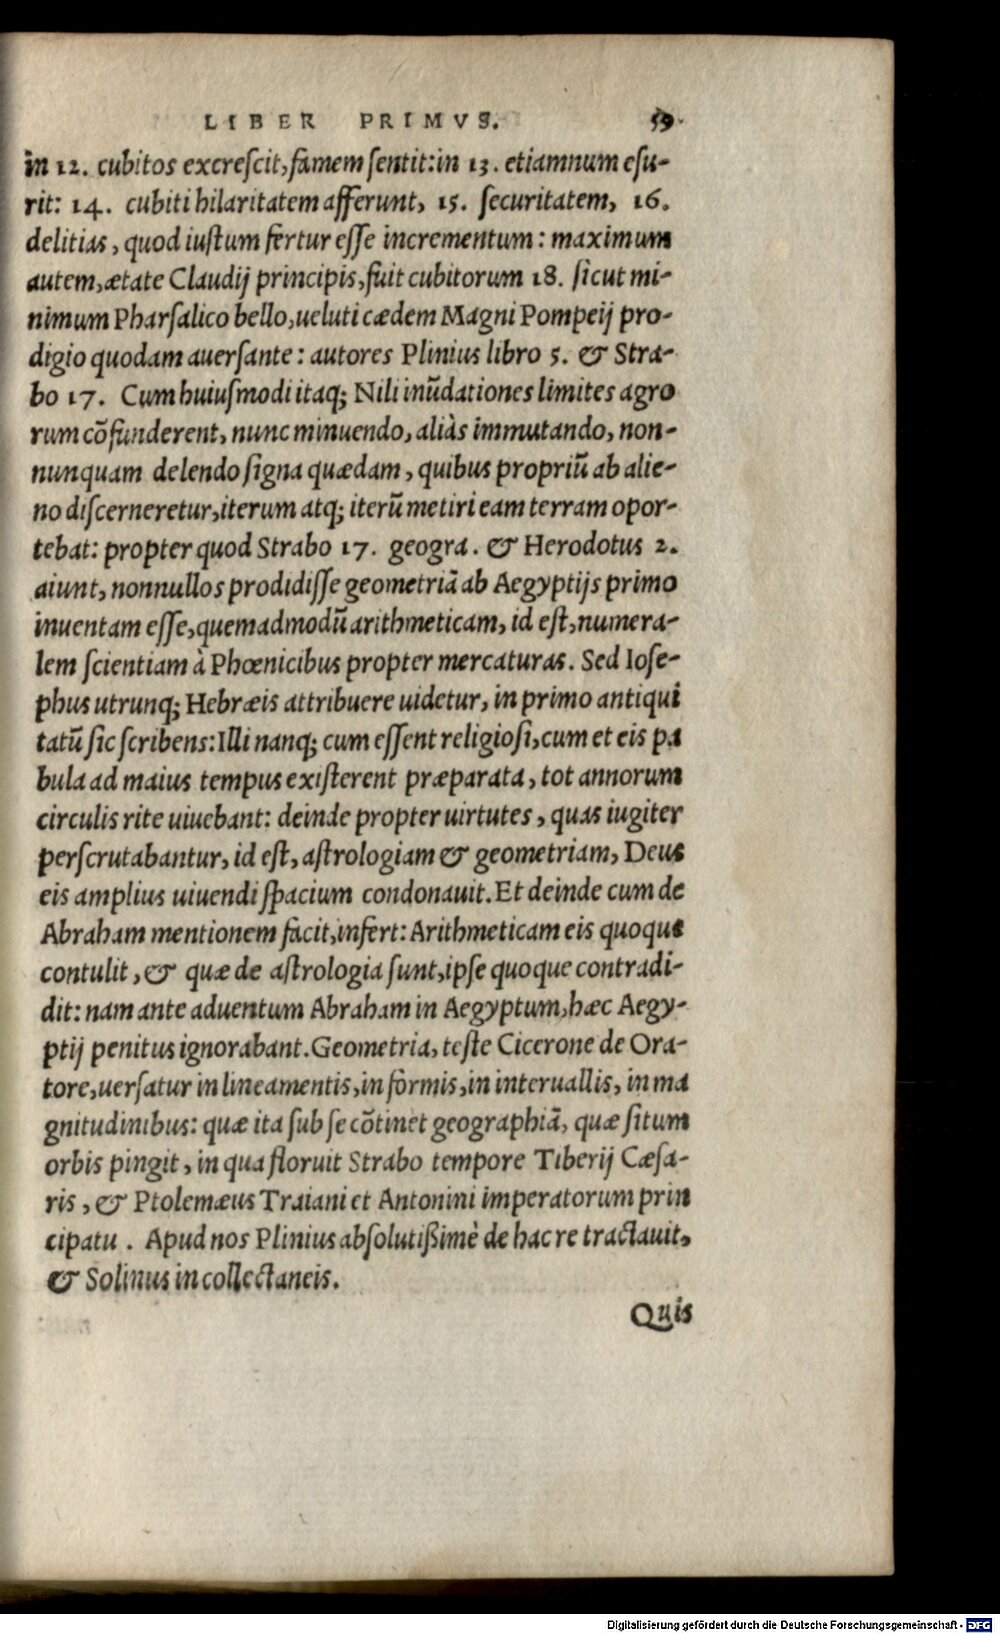 LIBER PRIMVS. 59.
in 12. cubitos excreſcit, famem ſentit: in 13. etiamnum eſu-
rit: 14. cubiti hilaritatem afferunt, 15. ſecuritatem, 16.
delitias, quod iuſtum fertur eſſe incrementum: maximum
autem, ætate Claudij principis, fuit cubitorum 18. ſicut mi-
nimum Pharſalico bello, ueluti cædem Magni Pompeij pro-
digio quodam auerſante: autores Plinius libro 5. & Stra-
bo 17. Cum huiuſmodi itaq; Nili inũdationes limites agro
rum cõfunderent, nunc minuendo, aliàs immutando, non-
nunquam delendo ſigna quædam, quibus propriũ ab alie-
no diſcerneretur, iterum atq; iterũ metiri eam terram opor-
tebat: propter quod Strabo 17. geogra. & Herodotus 2.
aiunt, nonnullos prodidiſſe geometriã ab Aegyptijs primo
inuentam eſſe, quemadmodũ arithmeticam, id eſt, numera-
lem ſcientiam à Phœnicibus propter mercaturas. Sed Ioſe-
phus utrunq; Hebræis attribuere uidetur, in primo antiqui
tatũ ſic ſcribens: Illi nanq; cum eſſent religioſi, cum et eis pa
bula ad maius tempus exiſterent præparata, tot annorum
circulis rite uiuebant: deinde propter uirtutes, quas iugiter
perſcrutabantur, id eſt, aſtrologiam & geometriam, Deus
eis amplius uiuendi ſpacium condonauit. Et deinde cum de
Abraham mentionem facit, infert: Arithmeticam eis quoque
contulit, & quæ de aſtrologia ſunt, ipſe quoque contradi-
dit: nam ante aduentum Abraham in Aegyptum, hæc Aegy-
ptij penitus ignorabant. Geometria, teſte Cicerone de Ora-
tore, uerſatur in lineamentis, in formis, in interuallis, in ma
gnitudinibus: quæ ita ſub ſe cõtinet geographiã, quæ ſitum
orbis pingit, in qua floruit Strabo tempore Tiberij Cæſa-
ris, & Ptolemæus Traiani et Antonini imperatorum prin
cipatu. Apud nos Plinius abſolutißimè de hac re tractauit,
& Solinus in collectaneis.
Quis
Digitalisierung gefördert durch die Deutsche Forschungsgemeinschaft - DFG